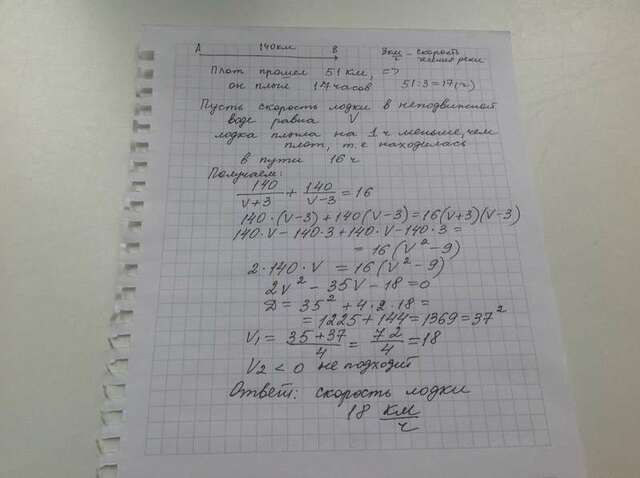 A 140км B 3 км/ч - скорость течения реки
Плот прошел 51 км, =>
он плыл 17 часов 51:3=17(ч)
Пусть скорость лодки в неподвижной
воде равна V
лодка плыла на 1 ч меньше, чем
плот, т.е находилась
в пути 16 ч
Получаем:
140/(V+3) + 140/(V-3) = 16
140·(V-3)+140(V-3)=16(V+3)(V-3)
140·V-140·3+140·V-140·3=
=16(V²-9)
2·140·V =16(V²-9)
2V²-35V-18=0
D=35²+4·2·18=
=1225+144=1369=37²
V₁= (35+37)/4 = 72/4 =18
V₂<0 не подходит
Ответ: скорость лодки
18 км/ч